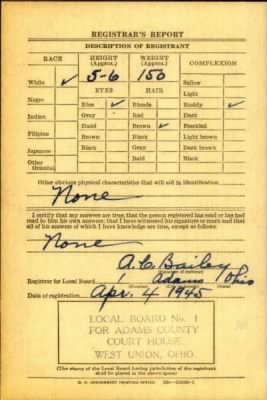 REGISTRAR'S REPORT
DESCRIPTION OF REGISTRANT
RACE HEIGHT (Approx.) WEIGHT (Approx.) COMPLEXION
White ✓ 5-6 150 Sallow
EYES HAIR Light
Negro Blue ✓ Blonde Ruddy ✓
Indian Gray Red Dark
Hazel Brown ✓ Freckled
Filipino Brown Black Light brown
Japanese Black Gray Dark brown
Other Oriental Bald Black
Other obvious physical characteristics that will aid in identification
None
I certify that my answers are true; that the person registered has read or has had
read to him his own answers; that I have witnessed his signature or mark and that
all of his answers of which I have knowledge are true, except as follows:
None
A. C. Bailey
(Signature of registrar)
Registrar for Local Board 1 Adams Ohio
Date of registration Apr. 4 1945
LOCAL BOARD No. 1
FOR ADAMS COUNTY
COURT HOUSE,
WEST UNION, OHIO
(The stamp of the Local Board having jurisdiction of the registrant
shall be placed in the above space)
U. S. GOVERNMENT PRINTING OFFICE